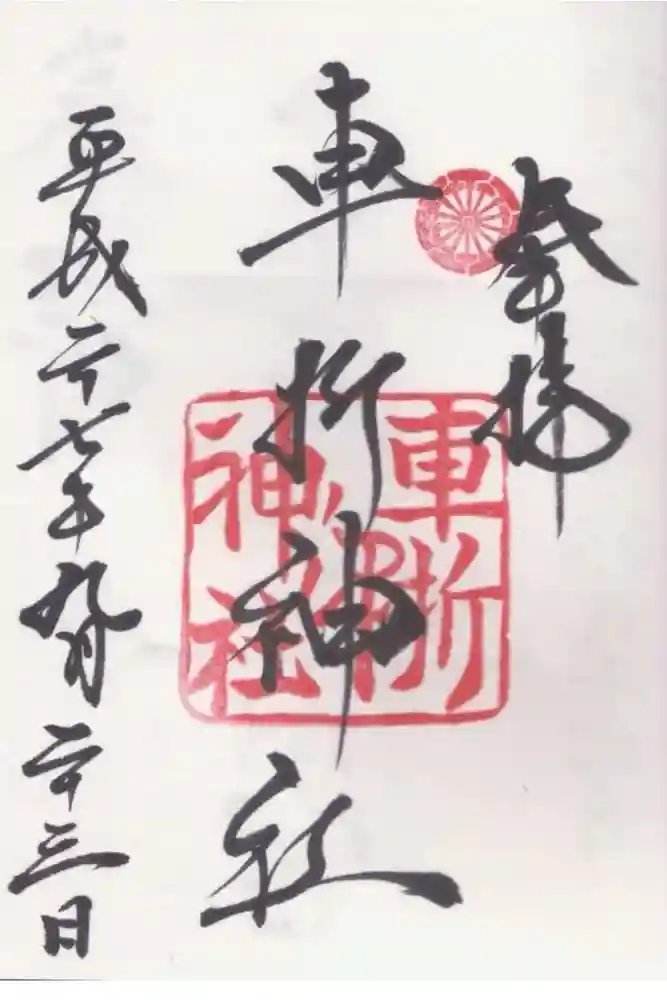 奉拝
車折神社
平成二十七年九月二十三日
車折
神社